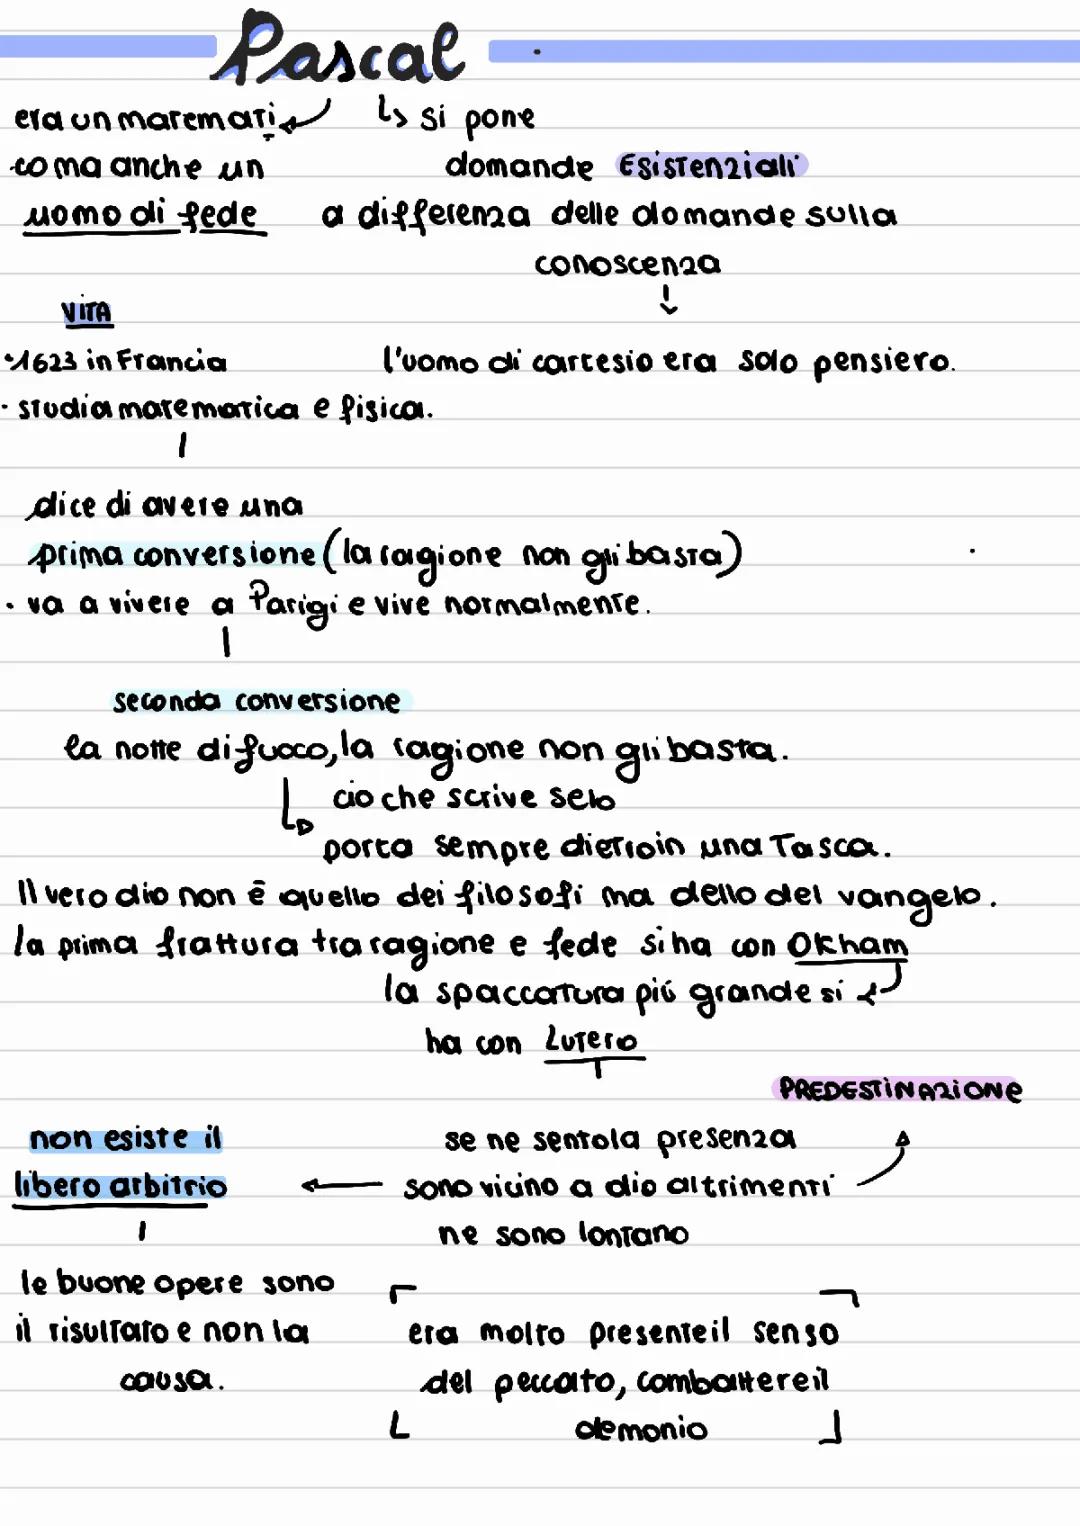 Pascal
era un matemati
co ma anche un
uomo di fede
↳ si pone
domande Esistenziali
a differenza delle domande sulla
conoscenza
l'uomo di cartesio era solo pensiero.
VITA
·1623 in Francia
· studia matematica e fisica.
dice di avere una
prima conversione (la ragione non gli basta)
· va a vivere a Parigi e vive normalmente.
seconda conversione
la notte di fuoco, la ragione non gli basta.
cio che scrive selo
porta sempre dietroin una Tasca.
Il vero dio non è quello dei filosofi ma dello del vangelo.
la prima frattura tra ragione e fede si ha con Okham
la spaccatura più grande si
ha con Lutero
PREDESTINAZIONE
se ne sentola presenza
sono vicino a dio altrimenti
ne sono lontano
non esiste il
libero arbitrio
le buone opere sono
il risultato e non la
causa.
era molto presenteil senso
del peccato, combattereil
demonio